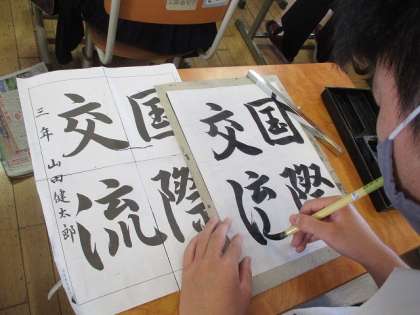 国際
交流
国際
交流
三年 山田健太郎